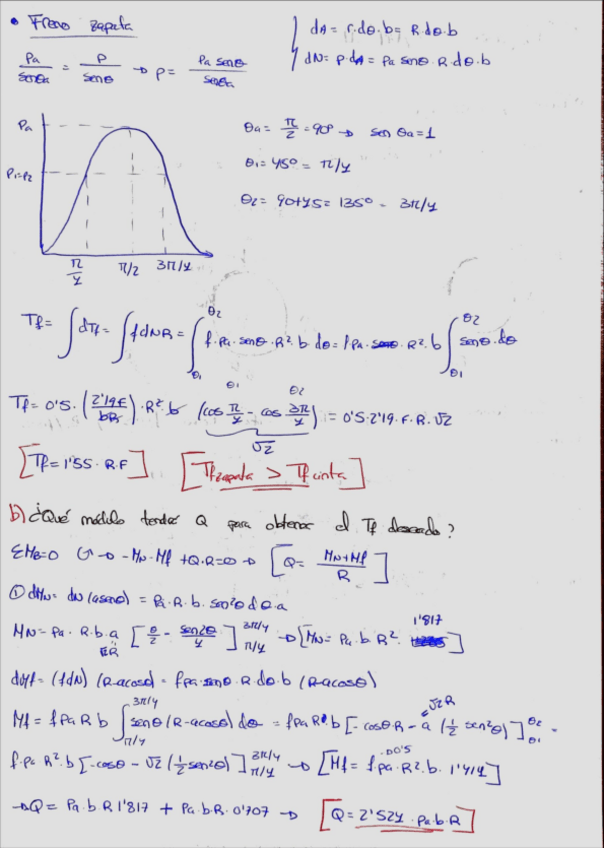 • Freno zapata
Pa/senθa = P/senθ → P = Pa senθ/senθa
dA = r·dθ·b = R·dθ·b
dN = p·dA = Pa senθ·R·dθ·b
θa = π/2 = 90° → sen θa = 1
θ1 = 45° = π/4
θ2 = 90+45 = 135° = 3π/4
Pa
P1=P2
π/4 π/2 3π/4
Tf = ∫dTf = ∫f dN R = ∫θ1^θ2 f·Pa·senθ·R²·b dθ = f Pa· R²·b ∫θ1^θ2 senθ·dθ
Tf = 0'5·(2'19F/bR)·R²·b (cos π/4 - cos 3π/4) = 0'5·2'19·F·R·√2
θ1 θ2
√2
[Tf = 1'55·R·F] [Tf zapata > Tf cinta]
b) ¿Qué módulo tendrá Q para obtener el Tf deseado?
ΣMB=0 → -MN-Mf+Q·R=0 → [Q = MN+Mf/R]
① dMN = dN(a senθ) = Pa·R·b·sen²θ dθ·a
MN = Pa·R·b·a [θ/2 - sen2θ/4] π/4^3π/4 → [MN = Pa·b·R²· 1'817]
√2R
dMf = (f dN)(R-a cosθ) = f Pa·senθ·R·dθ·b (R-a cosθ)
Mf = f Pa R b ∫π/4^3π/4 senθ (R-a cosθ) dθ = f Pa R b [-cosθ R - a (1/2 sen²θ)]θ1^θ2 =
√2R
f·Pa R²·b [-cosθ - √2 (1/2 sen²θ)] π/4^3π/4 → [Mf = f·Pa·R²·b·1'414]
0'5
→ Q = Pa b R 1'817 + Pa·b·R·0'707 → [Q = 2'524·Pa·b·R]